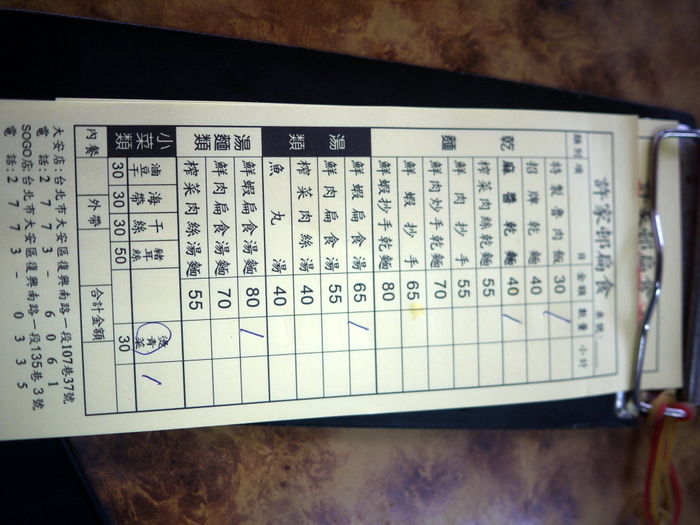 許家邨扁食
桌號:
類別 項目 金額 數量 小計
乾麵
特製魯肉飯 30 /
招牌乾麵 40
麻醬乾麵 40 /
榨菜肉絲乾麵 55
鮮肉抄手 55
鮮肉抄手乾麵 70
鮮蝦抄手 65
鮮蝦抄手乾麵 80
湯類
鮮蝦扁食湯 65 /
鮮肉扁食湯 55
榨菜肉絲湯 40
魚丸湯 40
湯麵類
鮮蝦扁食湯麵 80 /
鮮肉扁食湯麵 70
榨菜肉絲湯麵 55
小菜類
油豆干 海帶 干絲 豬耳絲 燙青菜 /
30 30 30 50 30
內餐 外帶 合計金額
大安店:台北市大安區復興南路一段107巷37號
電話:2773-6061
SOGO店:台北市大安區復興南路一段135巷3號
電話:2773-0335